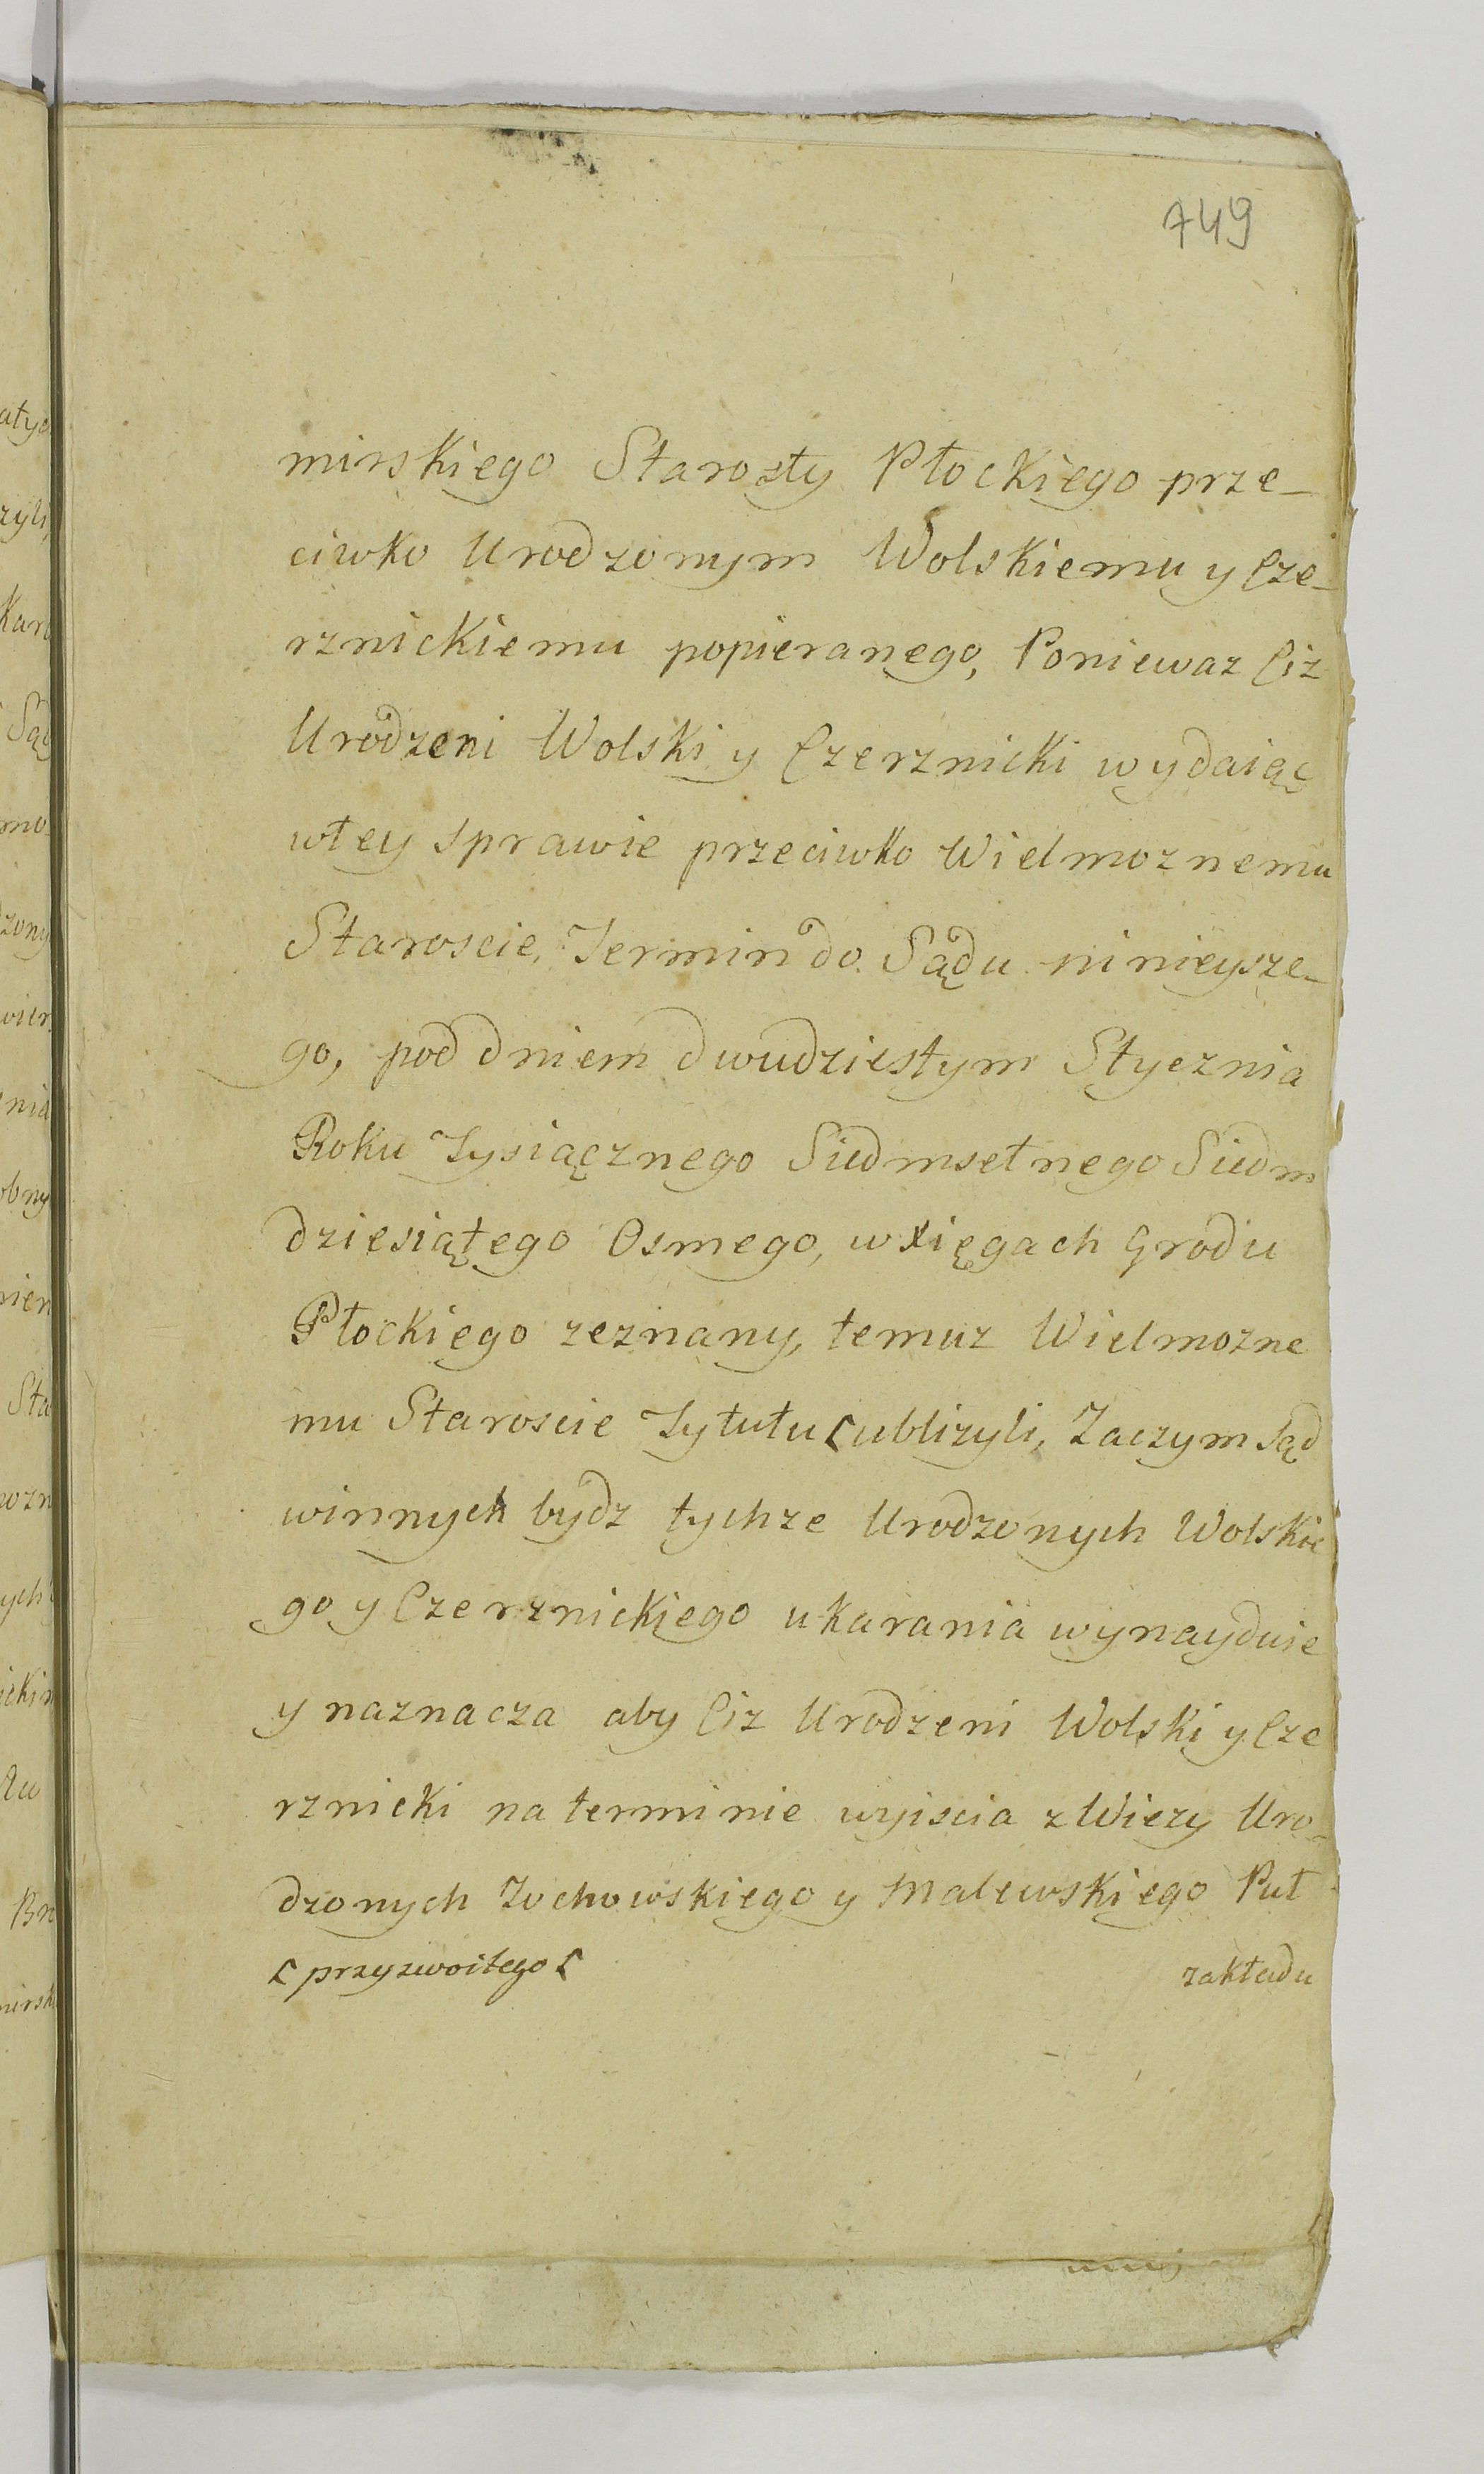 749
mirskiego Starosty Płockiego prze_
ciwko Urodzonym Wolskiemu y Cze_
rznickiemu popieranego, Poniewaz Ciz
Urodzeni Wolski y Czerznicki wydaiąc
wtey sprawie przeciwko Wielmoznemu
Staroscie, Termin do Sądu ninieysze_
go, pod dniem dwudziestym Stycznia
Roku Tysiącznego Siedmsetnego Siedm
dziesiątego Osmego, w xięgach Grodu
Płockiego zeznany, temuz Wielmozne
mu Staroscie Tytułu ublizyli, Zaczym Sąd
winnych bydz tychze Urodzonych Wolskie
go y Czerznickiego ukarania wynayduie
y naznacza aby Ciz Urodzeni Wolski y Cze
rznicki na terminie wyiscia z Wiezy Uro_
dzonych Zochowskiego y Malewskiego Puł
przyzwoitego
zakładu